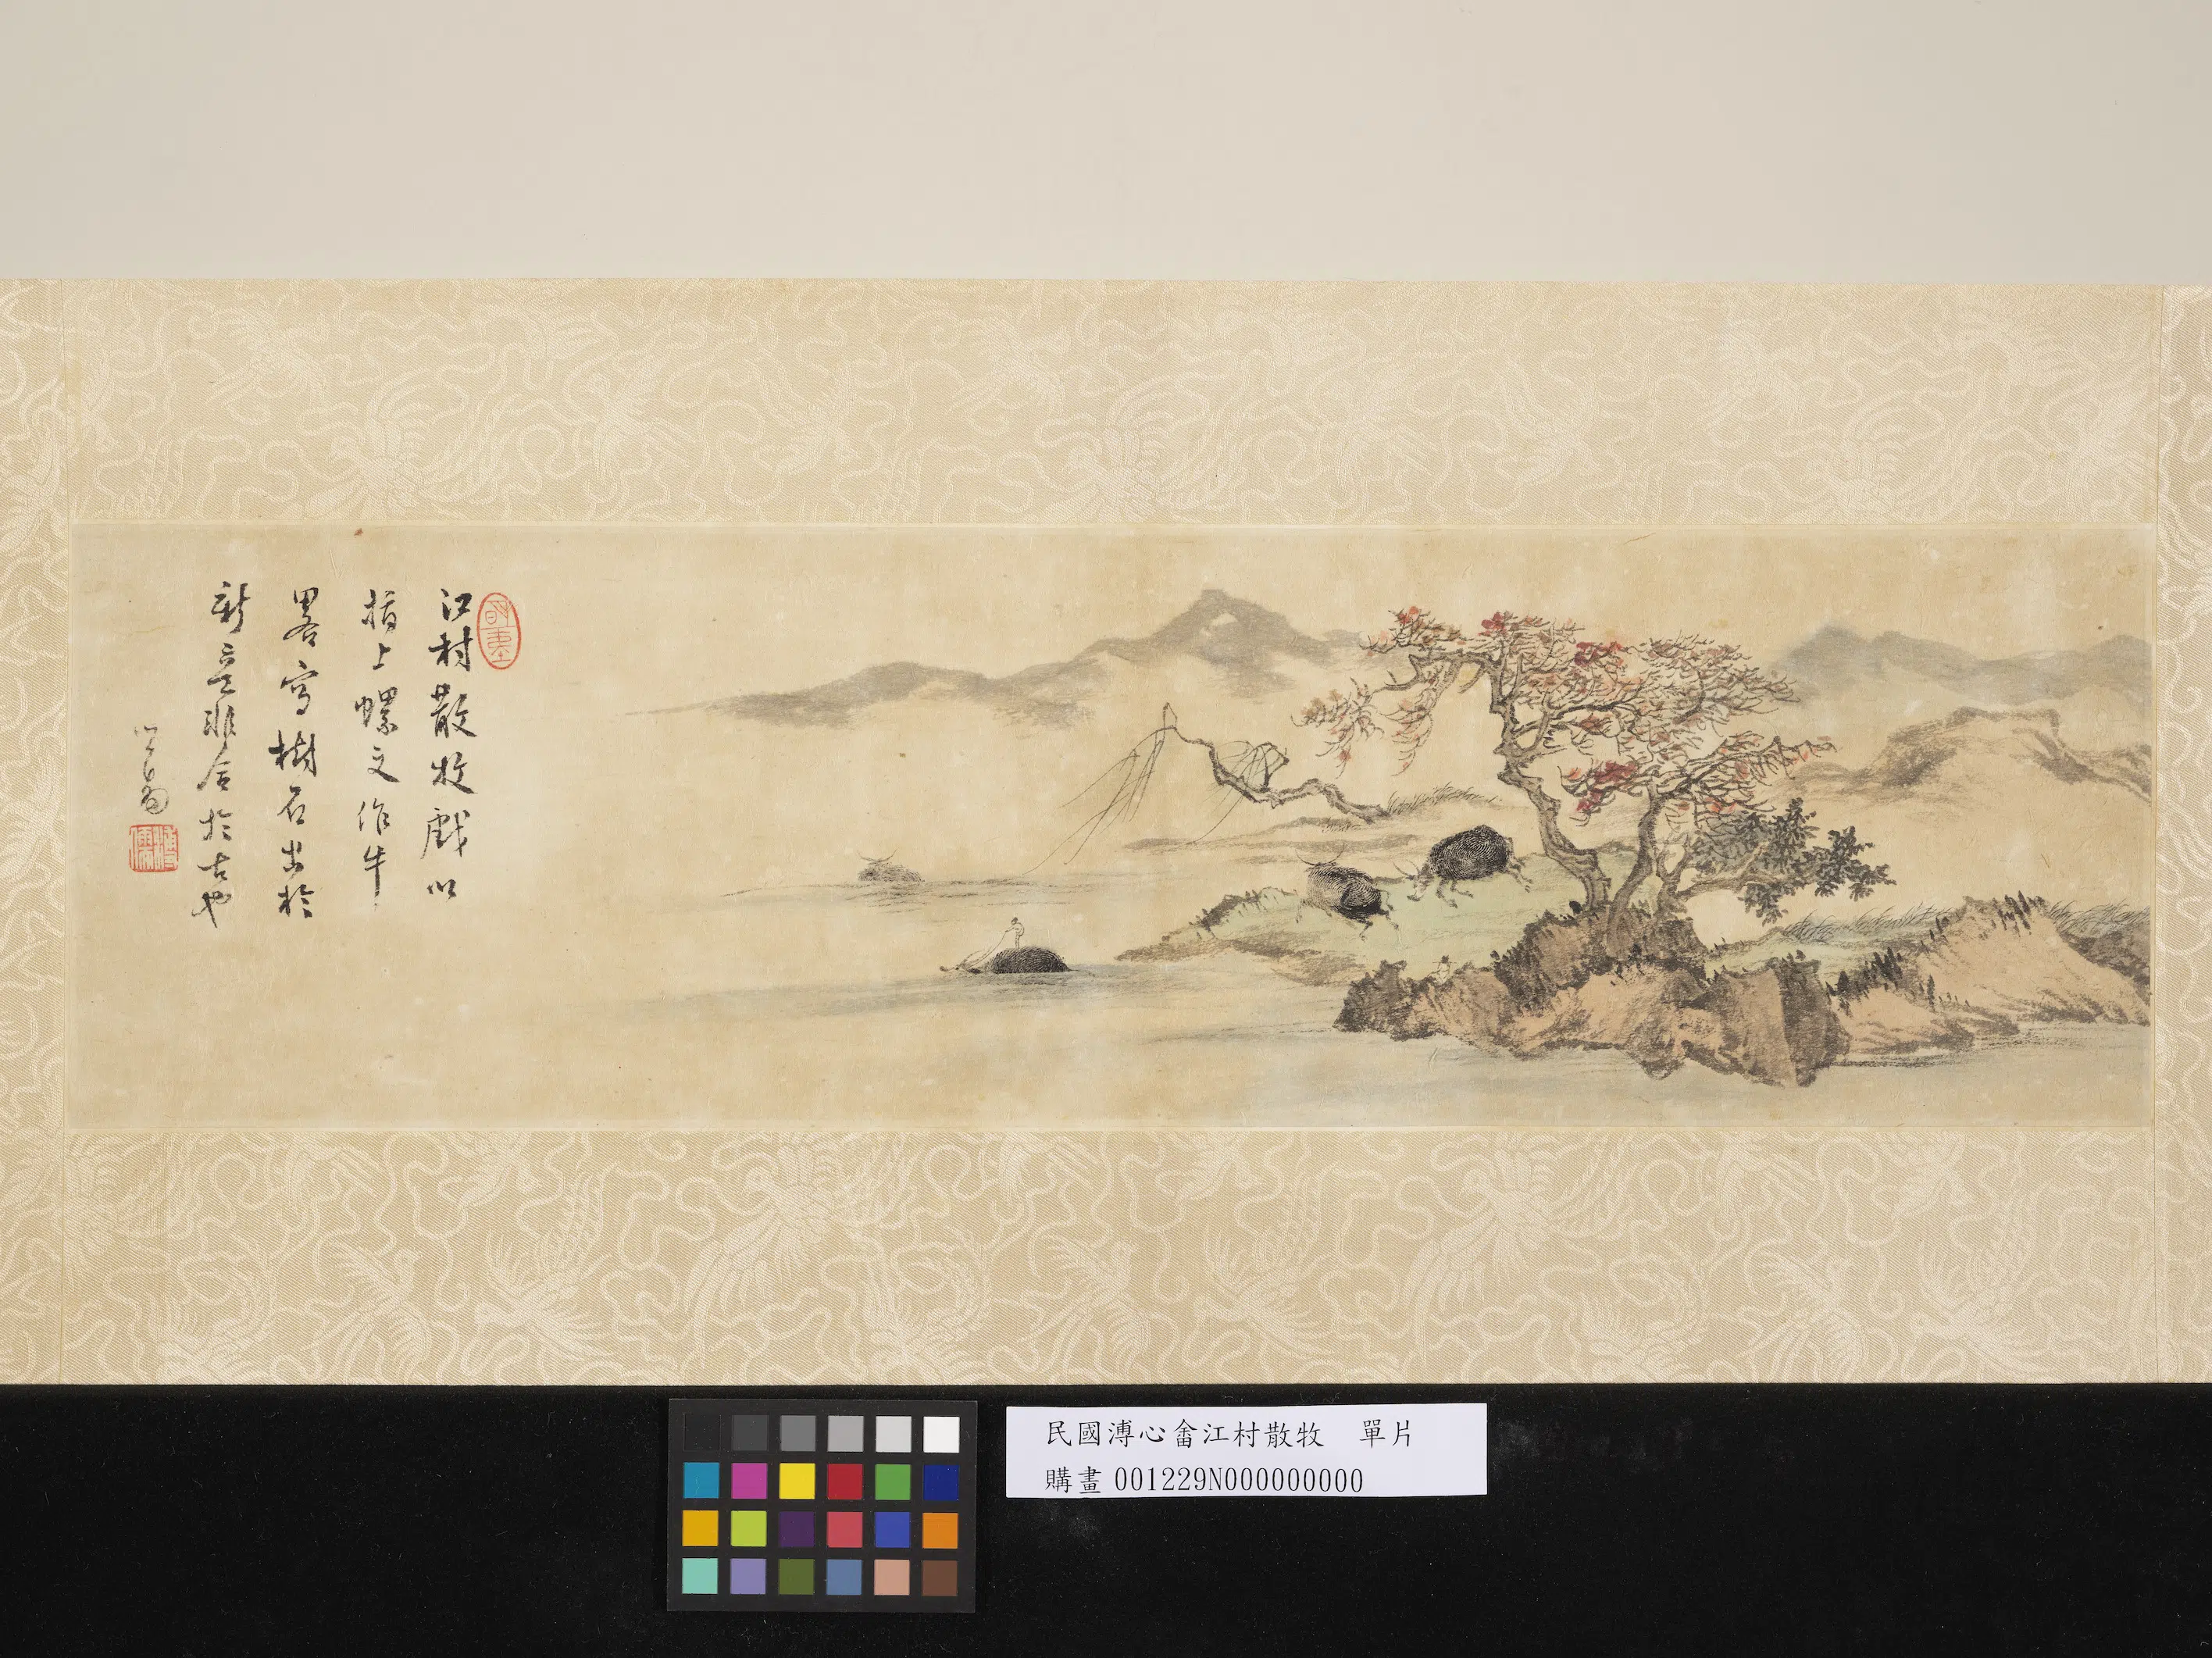 江村散牧戲以
指上螺文作牛
略寫樹石出於
新意非合於古也
心畬
溥儒
民國溥心畬江村散牧 單片
購畫001229N000000000